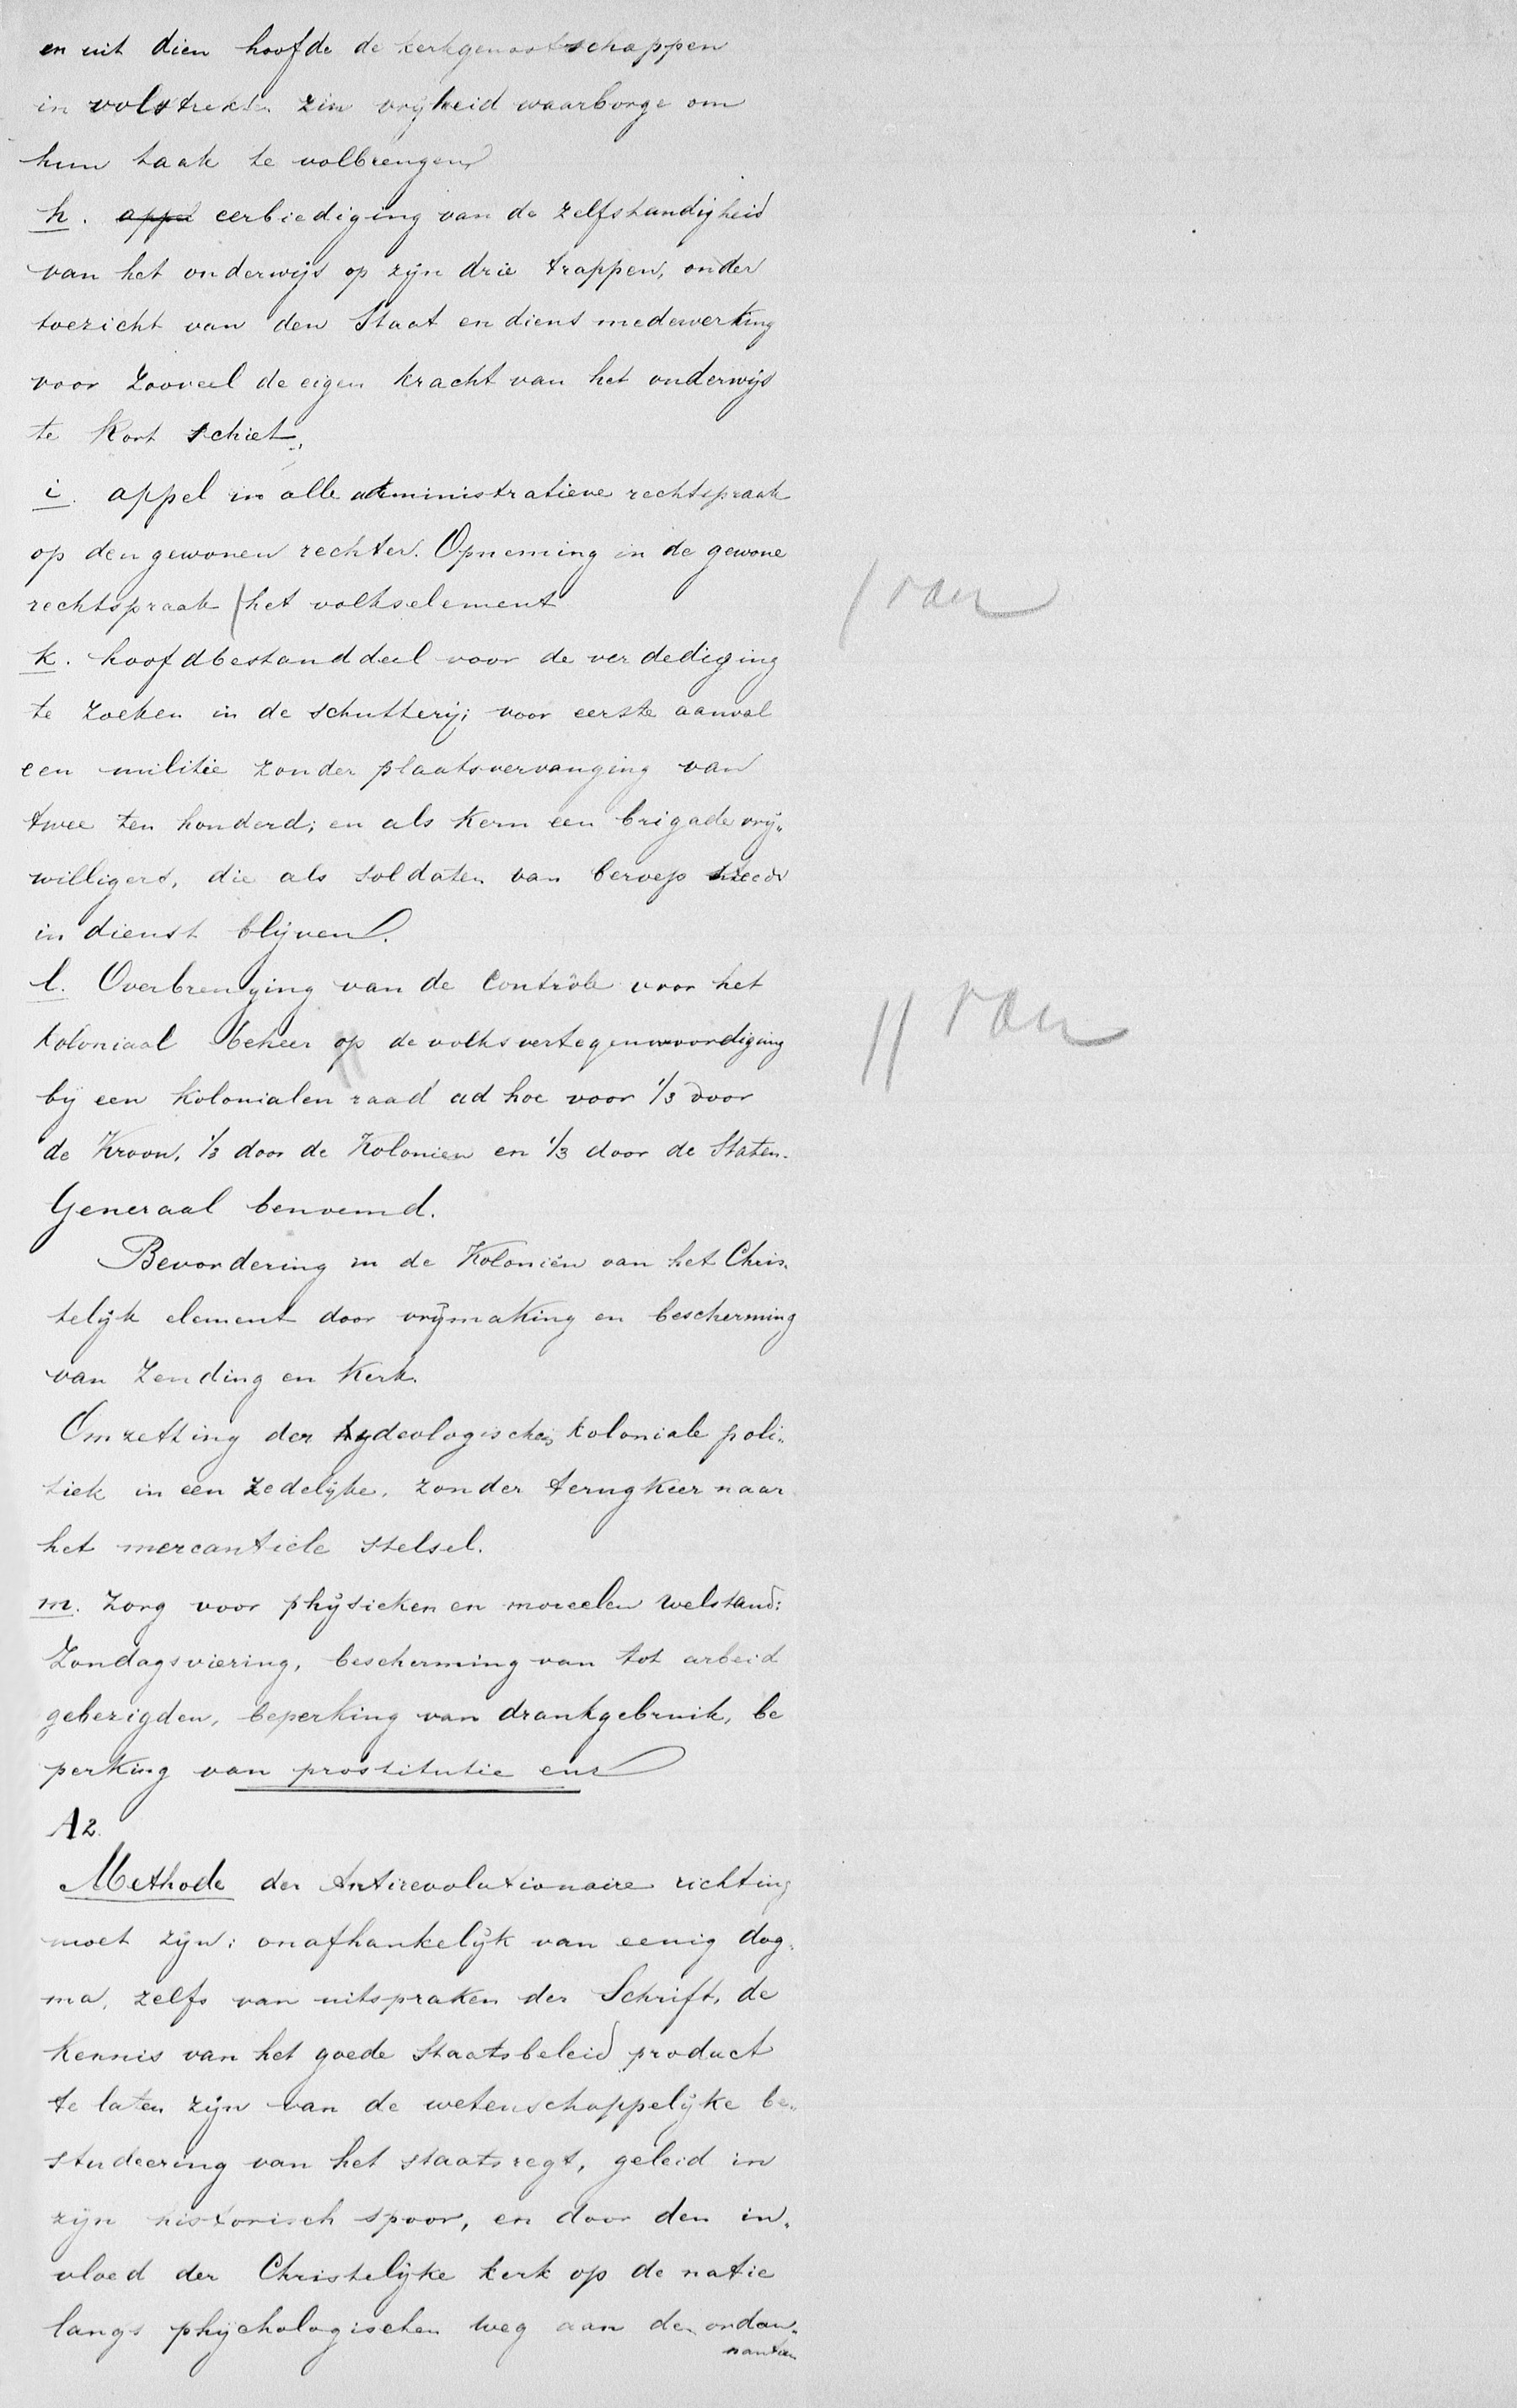 en uit dien hoofde de kerkgenootschappen
in volstrekten zin vrijheid waarborge om
hun taak te volbrengen
h. appel eerbiediging van de zelfstandigheid
van het onderwijs op zijn drie trappen, onder
toezicht van den Staat en diens medewerking
voor zooveel de eigen kracht van het onderwijs
te kort schiet.
i. appel in alle administratieve rechtspraak
op den gewonen rechter. Opneming in de gewone
rechtspraak / het volkselement
/ van
k. hoofdbestanddeel voor de verdediging
te zoeken in de schutterij; voor eerste aanval
een militie zonder plaatsvervanging van
twee ten honderd; en als kern een brigade vrij„
willigers, die als soldaten van beroep steeds
in dienst blijven.
l. Overbrenging van de Contrôle voor het
koloniaal beheer op de volksvertegenwoordiging
// van
bij een kolonialen raad ad hoc voor 1/3 door
de Kroon, 1/3 door de Kolonien en 1/3 door de Staten-
Generaal benoemd.
Bevordering in de Koloniën van het Chris-
telijk element door vrijmaking en bescherming
van Zending en Kerk.
Omzetting der koloniale poli„
tiek in een zedelijke, zonder terugkeer naar
het mercantiele stelsel.
m. Zorg voor physieken en moreelen welstand:
Zondagsviering, bescherming van tot arbeid
gebezigden, beperking van drankgebruik, be
perking van prostitutie enz
A2.
Methode der Antirevolutionaire richting
moet zijn: onafhankelijk van eenig dog-
ma, zelfs van uitspraken der Schrift, de
kennis van het goede Staatsbeleid product
te laten zijn van de wetenschappelijke be„
studeering van het staatsregt, geleid in
zijn historisch spoor, en door den in„
vloed der Christelijke kerk op de natie
langs phychologischen weg aan de ordon„
nantien